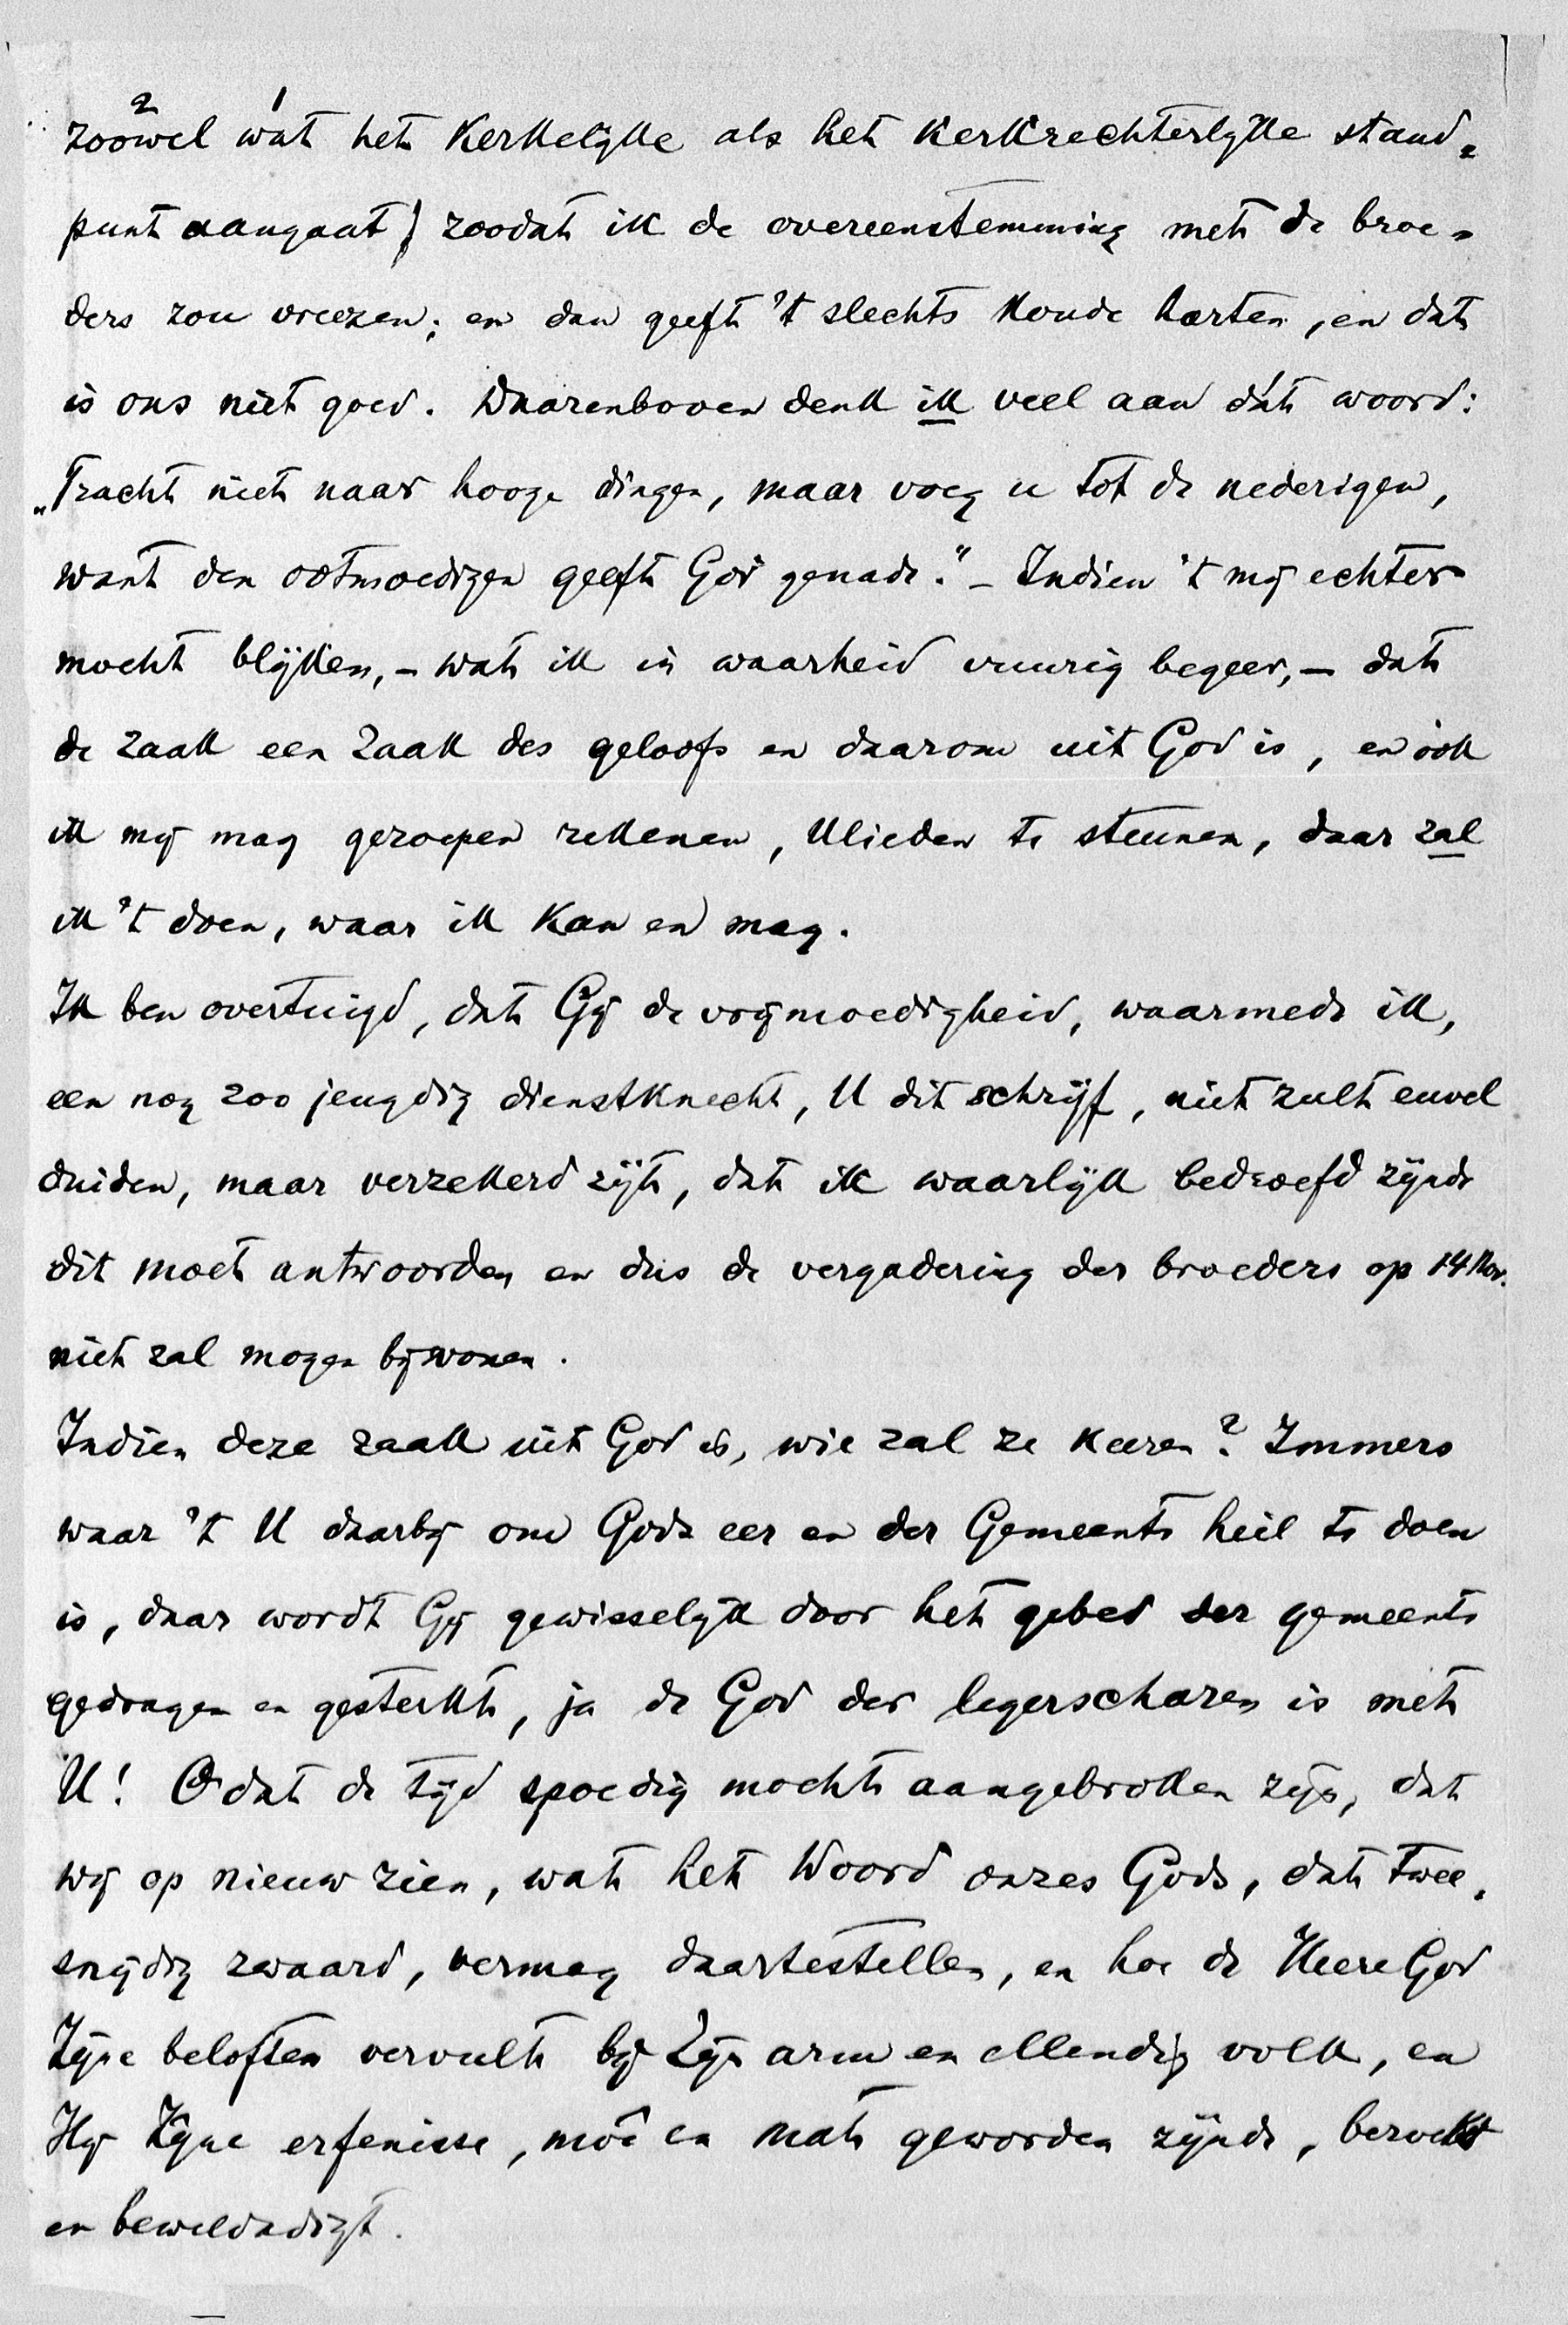 zoowel wat het Kerkelijke als het Kerkrechterlijke stand=
punt aangaat) zoodat ik de overeenstemming met de broe=
ders zou vreezen; en dan geeft 't slechts koude harten, en dat
is ons niet goed. Daarenboven denk ik veel aan dát woord:
„Tracht niet naar hooge dingen, maar voeg u tot de nederigen,
want den ootmoedigen geeft God genade." – Indien 't mij echter
mocht blijken, – wat ik in waarheid vuurig begeer, – dat
de zaak een zaak des geloofs en daarom uit God is, en óók
ik mij mag geroepen rekenen, Ulieden te steunen, daar zal
ik 't doen, waar ik kan en mag.
Ik ben overtuigd, dat Gij de vrijmoedigheid, waarmede ik,
een nog zoo jeugdig dienstknecht, U dit schrijf, niet zult euvel
duiden, maar verzekerd zijt, dat ik waarlijk bedroefd zijnde
dit moet antwoorden en dus de vergadering der broeders op 14 Nov.
niet zal mogen bijwonen.
Indien deze zaak uit God is, wie zal ze keeren? Immers
waar 't U daarbij om Gods eer en der Gemeente heil te doen
is, daar wordt Gij gewisselijk door het gebed der gemeente
gedragen en gesterkt, ja de God der legerscharen is met
U! O dat de tijd spoedig mocht aangebroken zijn, dat
wij op nieuw zien, wat het Woord onzes Gods, dat twee=
snijdig zwaard, vermag daartestellen, en hoe de Heere God
Zijne beloften vervult bij Zijn arm en ellendig volk, en
Hij Zijne erfenisse, moê en mat geworden zijnde,
en beweldadigt.